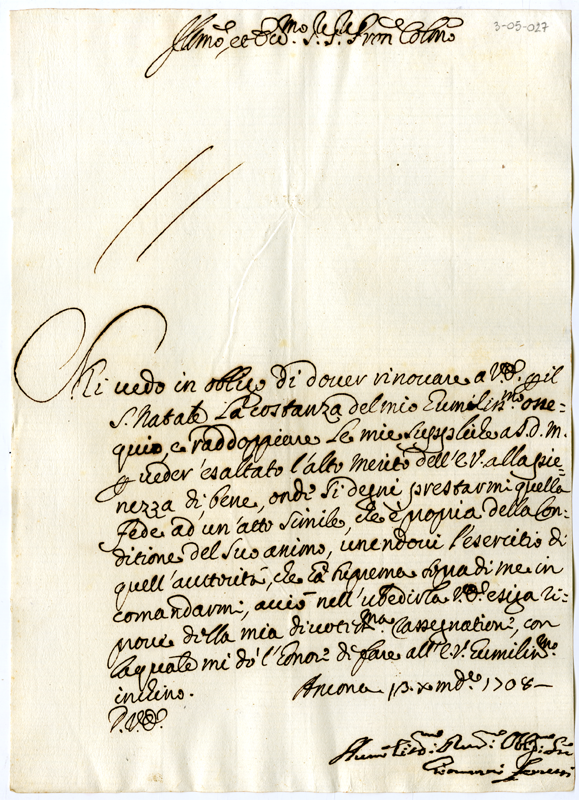 3-05-027
Illmo, et Ecc.mo Sig.re Sig.re Pron Colmo
Mi vedo in obligo di dover rinovare a V.E. p il
S. Natale la costanza del mio humilin.mo osse=
quio, e raddoppiare le mie suppliche a S. D. M.
p veder' esaltato l'alto merito dell'E.V. alla pie=
nezza di bene, onde si degni prestarmi quella
fede ad un'atto simile, che è propria della Con=
ditione del suo animo, unendovi l'esercitio di
quell'auttorità, che ha suprema sopra di me in
comandarmi, acciò nell'ubedirla V.E. esiga ri=
prove della mia divotis.ma rassegnatione, con
la quale mi dò l'honore di fare all'E.V. humilin.mo
inchino. Ancona 13 x mbre 1708
D. V. E.
Humiliss.mo Oblig.mo
Giovanni